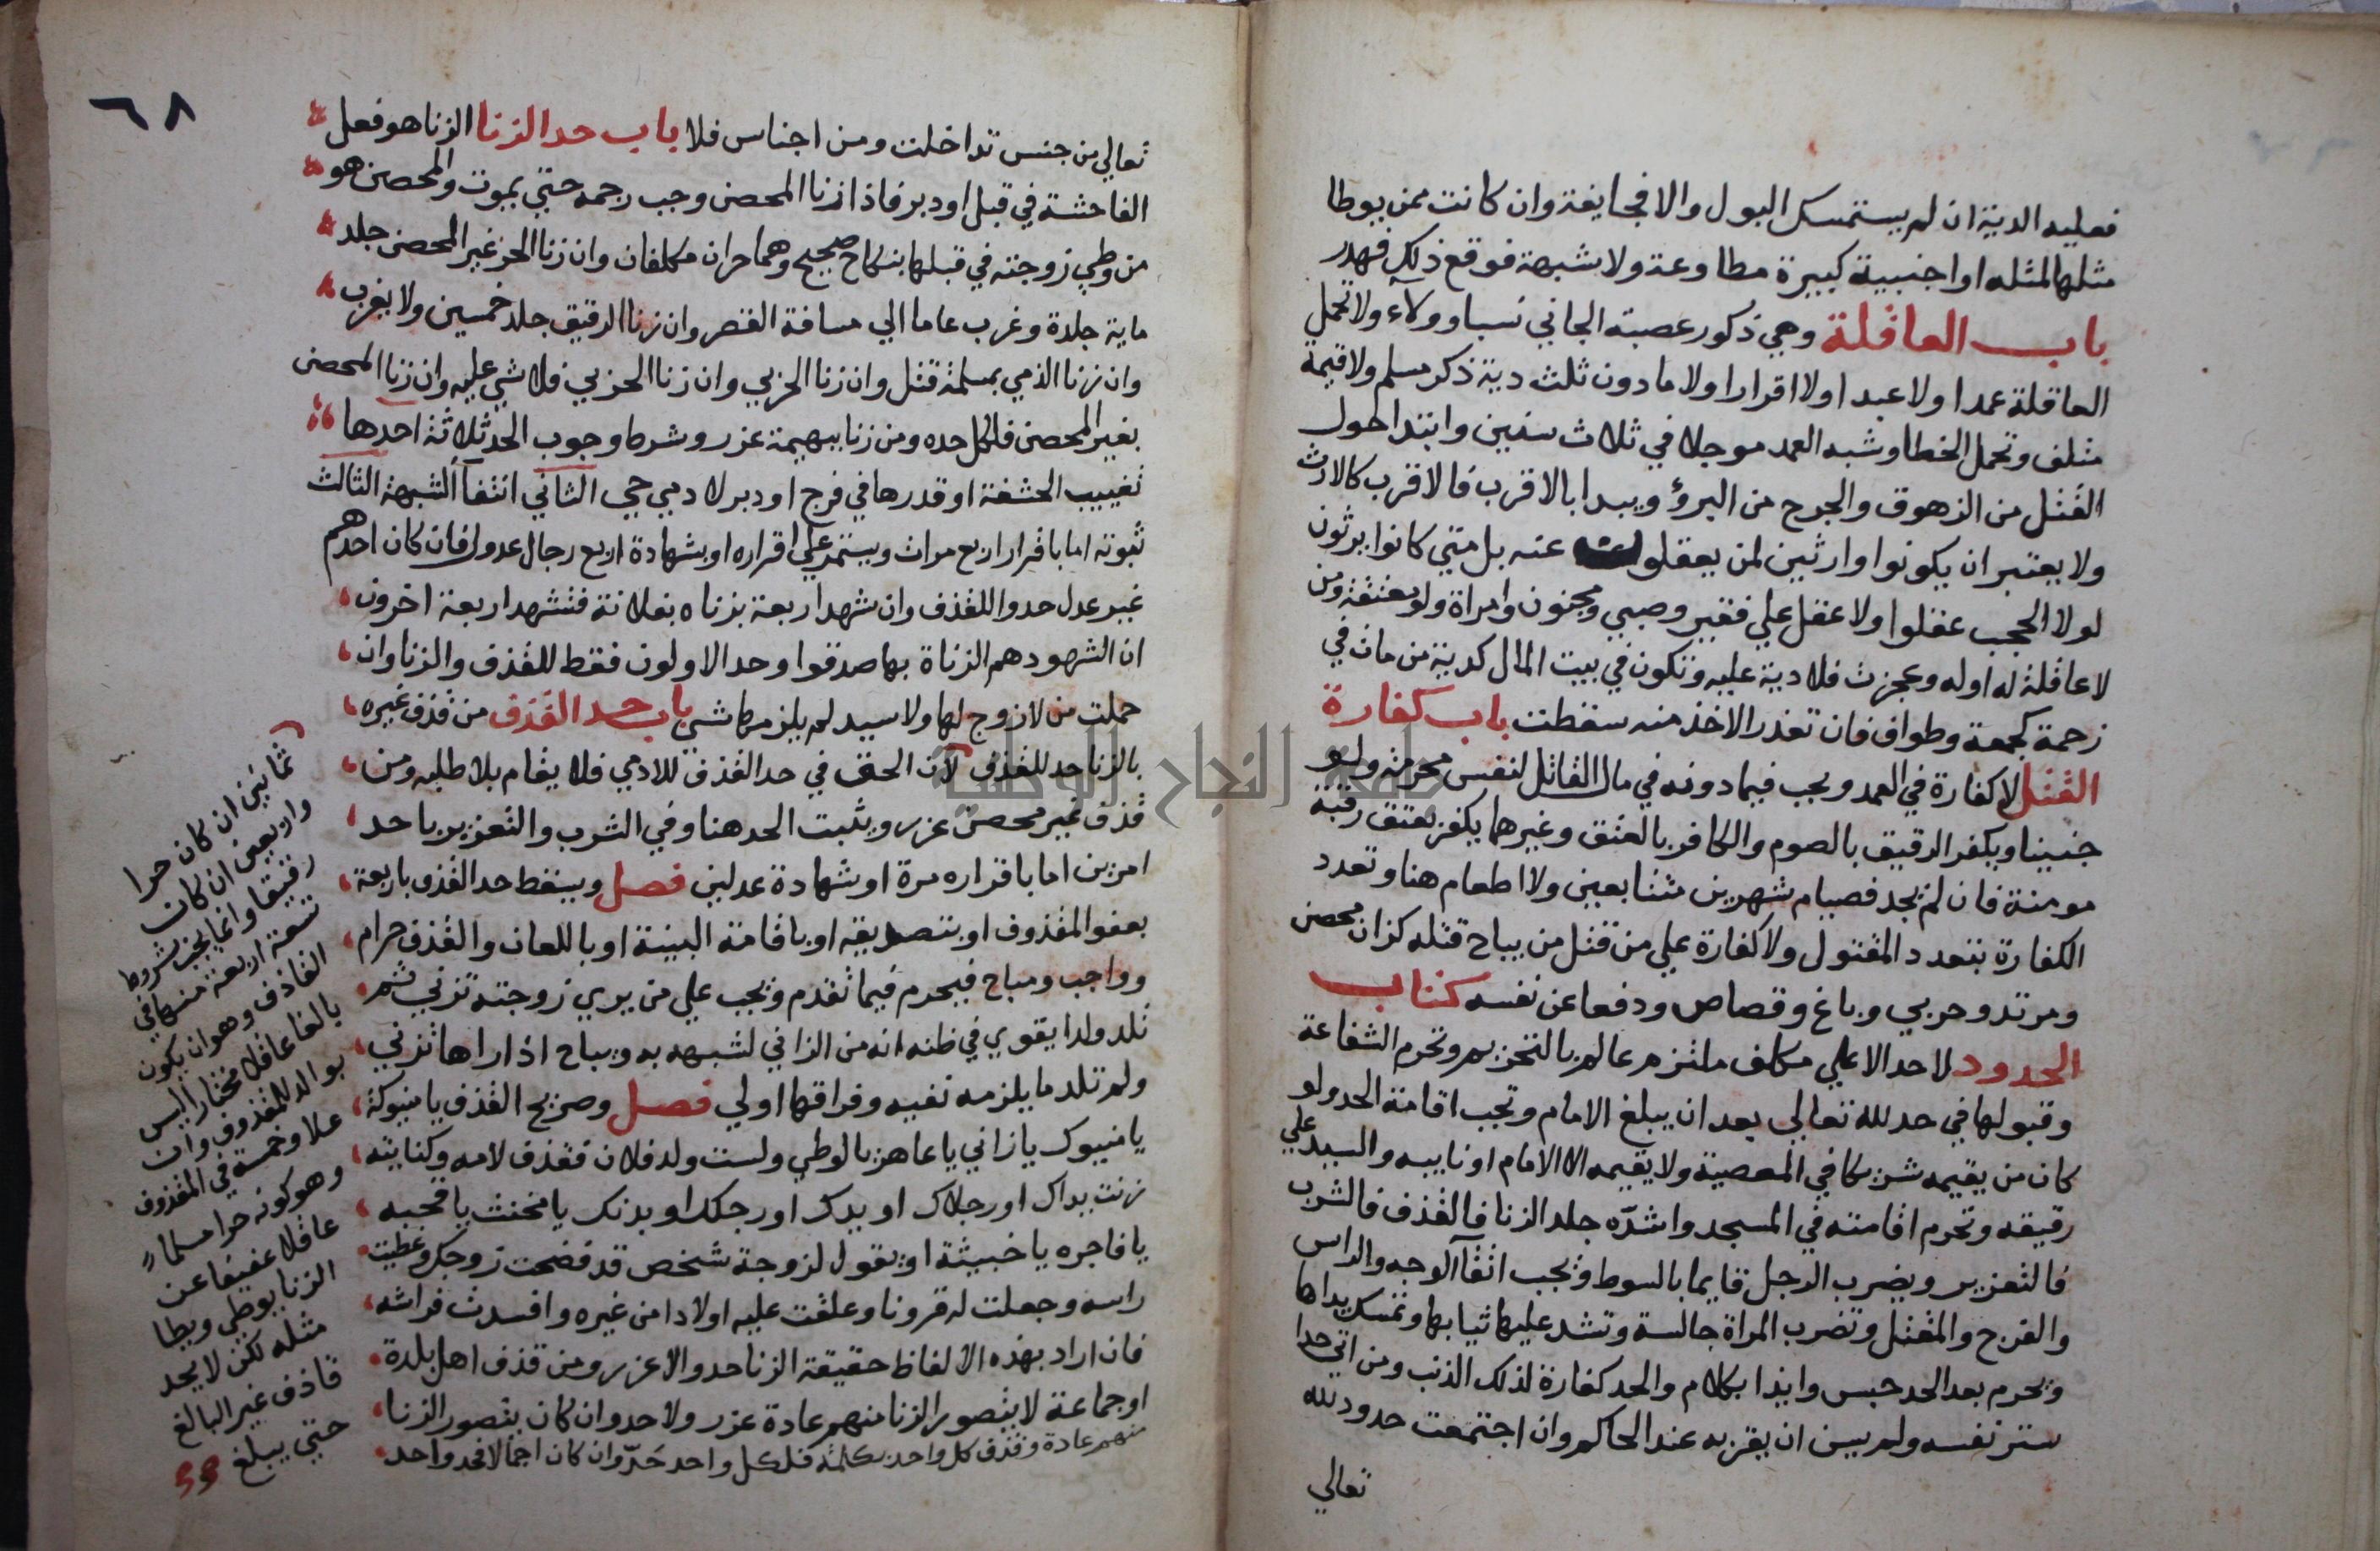 فعليه الدية ان لم يستمسك البول والا فجايفة وان كانت ممن يوطا
مثلها لمثله او اجنبية كبيرة مطاوعة ولا شبهة فوقع ذلك فهدر
باب العاقلة وهي ذكور عصبة الجاني نسبا وولاء ولا تحمل
العاقلة عمدا ولا عبدا ولا اقرارا ولا ما دون ثلث دية ذكر مسلم ولا قيمة
متلف وتحمل الخطا وشبه العمد موجلا في ثلاث سنين وابتدا حول
القتل من الزهوق والجرح من البرؤ ويبدا بالاقرب فالاقرب كالارث
ولا يعتبر ان يكونوا وارثين لمن يعقلون عنه بل متي كانوا يرثون
لولا الحجب عقلوا ولا عقل علي فقير وصبي ومجنون وامراة ولو معتقة ومن
لا عاقلة له او له وعجزت فلا دية عليه وتكون في بيت المال كدية من مات في
زحمة كجمعة وطواف فان تعذر الاخذ منه سقطت باب كفارة
القتل لا كفارة في العمد ويجب فيما دونه في مال القاتل لنفس محرمة ولو
جنينا ويكفر الرقيق بالصوم والكافر بالعتق وغيرهما يكفر بعتق رقبة
مومنة فان لم يجد فصيام شهرين متتابعين ولا اطعام هنا وتعدد
الكفارة بتعدد المقتول ولا كفارة علي من قتل من يباح قتله كزان محصن
ومرتد وحربي وباغ وقصاص ودفعا عن نفسه كتاب
الحدود لا حد الا علي مكلف ملتزم عالم بالتحريم وتحرم الشفاعة
وقبولها في حد لله تعالي بعد ان يبلغ الامام وتجب اقامة الحد ولو
كان من يقيمه شريكا في المعصية ولا يقيمه الا الامام او نايبه والسيد علي
رقيقه وتحرم اقامته في المسجد واشدّه جلد الزنا فالقذف فالشرب
فالتعزير ويضرب الرجل قايما بالسوط ويجب اتقآ الوجه والراس
والفرج والمقتل وتضرب المراة جالسة وتشد عليها ثيابها وتمسك يداها
ويحرم بعد الحد حبس وايذا بكلام والحد كفارة لذلك الذنب ومن اتي حدا
ستر نفسه ولم يسن ان يقر به عند الحاكم وان اجتمعت حدود لله
تعالي
٦٨
تعالي من جنس تداخلت ومن اجناس فلا باب حد الزنا الزنا هو فعل
الفاحشة في قبل او دبر فاذا زنا المحصن وجب رجمه حتي يموت والمحصن هو
من وطي زوجته في قبلها بنكاح صحيح وهما حران مكلفان وان زنا الحر غير المحصن جلد
ماية جلدة وغرب عاما الي مسافة القصر وان زنا الرقيق جلد خمسين ولا يغرب
وان زنا الذمي بمسلمة قتل وان زنا الحربي وان زنا الحربي فلا شي عليه وان زنا المحصن
بغير المحصن فلكل حده ومن زنا ببهيمة عزر وشرط وجوب الحد ثلاثة احدها
تغييب الحشفة او قدرها في فرج او دبر لادمي حي الثاني انتفآ الشبهة الثالث
ثبوته اما باقرار اربع مرات ويستمر علي اقراره او بشهادة اربع رجال عدول فان كان احدهم
غير عدل حدوا للقذف وان شهد اربعة بزناه بفلانة فشهد اربعة اخرون
ان الشهود هم الزناة بها صدقوا وحد الاولون فقط للقذف والزنا وان
حملت من لا زوج لها ولا سيد لم يلزمها شي باب حد القذف من قذف غيره
بالزنا حد للقذف لان الحق في حد القذف للادمي فلا يقام بلا طلبه ومن
قذف غير محصن عزر ويثبت الحد هنا وفي الشرب والتعزير باحد
امرين اما باقراره مرة او شهادة عدلين فصل ويسقط حد القذف باربعة
بعفو المقذوف او بتصديقه او باقامة البينة او باللعان والقذف حرام
وواجب ومباح فيحرم فيما تقدم ويجب علي من يري زوجته تزني ثم
تلد ولدا يقوي في ظنه انه من الزاني لشبهه به ويباح اذا راها تزني
ولم تلد ما يلزمه نفيه وفراقها اولي فصل وصريح القذف يا منيوكة
يا منيوك يا زاني يا عاهر يا لوطي ولست ولد فلان فقذف لامه وكنايته
زنت يداك او رجلاك او يدك او رجلك او بدنك يا مخنث يا قحبه
يا فاجره يا خبيثة او يقول لزوجة شخص قد فضحت زوجك وغطيت
راسه وجعلت له قرونا وعلقت عليه اولادا من غيره وافسدت فراشه
فان اراد بهذه الالفاظ حقيقة الزنا حد والا عزر ومن قذف اهل بلدة
او جماعة لا يتصور الزنا منهم عادة عزر ولا حد وان كان يتصور الزنا
منهم عادة وقذف كل واحد بكلمة فلكل واحد حدّ وان كان اجمالا فحد واحد
ثمانين ان كان حرا
واربعين ان كان
رقيقا وانما يجب بشروط
تسعة اربعة منها في
القاذف وهو ان يكون
بالغا عاقلا مختارا ليس
بوالد للمقذوف وان
علا وخمسة في المقذوف
وهو كونه حرا مسلما
عاقلا عفيفا عن
الزنا يوطي ويطا
مثله لكن لا يحد
قاذف غير البالغ
حتي يبلغ
جامعة النجاح الوطنية